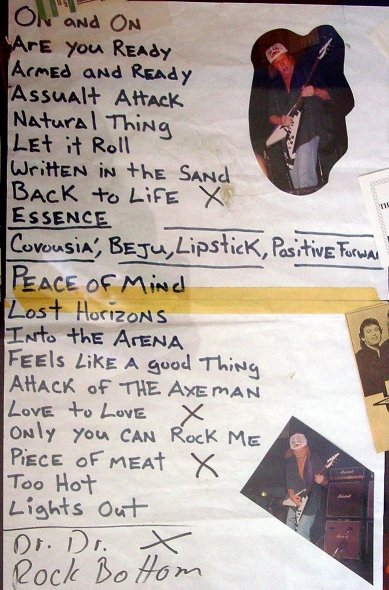 ON and ON
Are you Ready
Armed and Ready
Assualt Attack
Natural Thing
Let it Roll
Written in the Sand
Back to Life X
Essence
Covousia', Beju, Lipstick, Positive Forwa
Peace of Mind
Lost Horizons
Into the Arena
Feels Like a good Thing
Attack of The Axeman
Love to Love X
Only you can Rock Me
Piece of meat X
Too Hot
Lights Out
Dr. Dr. X
Rock Bottom